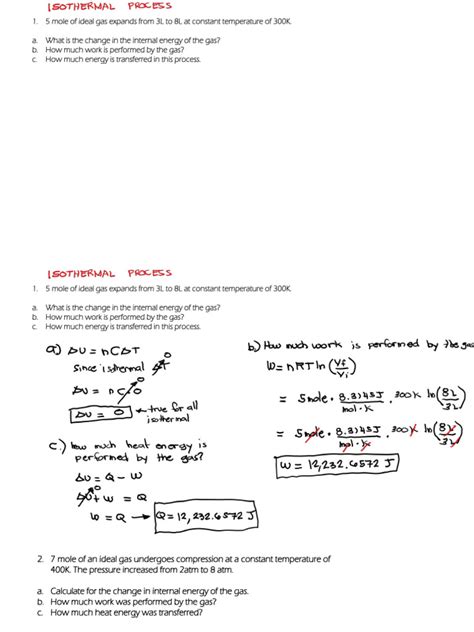 ISOTHERMAL PROCESS
1. 5 mole of ideal gas expands from 3L to 8L at constant temperature of 300K.
a. What is the change in the internal energy of the gas?
b. How much work is performed by the gas?
c. How much energy is transferred in this process.
ISOTHERMAL PROCESS
1. 5 mole of ideal gas expands from 3L to 8L at constant temperature of 300K.
a. What is the change in the internal energy of the gas?
b. How much work is performed by the gas?
c. How much energy is transferred in this process.
a) ΔU = nCΔT
since isothermal ΔT 0
ΔU = nC·0
ΔU = 0 ← true for all isothermal
b) How much work is performed by the gas
W = nRT ln (Vf/Vi)
= 5mole · 8.3145J/mol·K · 300K ln (8L/3L)
= 5mole · 8.3145J/mol·K · 300K ln (8L/3L)
W = 12,232.6572 J
c.) how much heat energy is
performed by the gas?
ΔU = Q - W
ΔU 0 + W = Q
W = Q → Q = 12,232.6572 J
2. 7 mole of an ideal gas undergoes compression at a constant temperature of
400K. The pressure increased from 2atm to 8 atm.
a. Calculate for the change in internal energy of the gas.
b. How much work was performed by the gas?
c. How much heat energy was transferred?